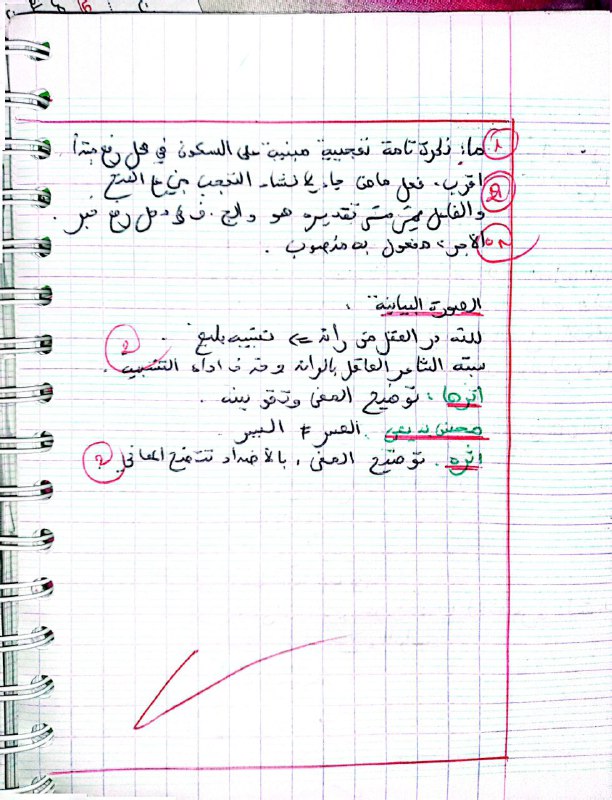 ما: نكرة تامة تعجبية مبنية على السكون في محل رفع مبتدأ
اقرب: فعل ماض جاء لانشاء التعجب مبني على الفتح
والفاعل ضمير مستتر تقديره هو والج. ف في محل رفع خبر.
الأجر: مفعول به منصوب.
الصورة البيانية:
لله در العقل من رائد => تشبيه بليغ
شبه الشاعر العاقل بالرائد وحذف اداة التشبيه.
اثرها: توضيح المعنى وتقويته.
محسن بديعي. العسر ≠ اليسر
اثره. توضيح المعنى، بالأضداد تتضح المعاني